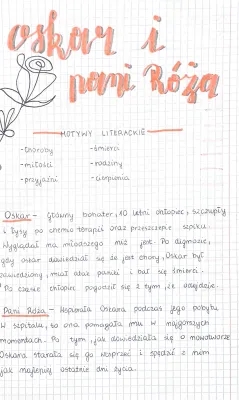 Oskar i
pani Róża
MOTYWY LITERACKIE
-choroby
-śmierci
-miłości
-rodziny
-przyjaźni
-cierpienia
Oskar - główny bohater, 10 letni chłopiec, szczupły
i łysy po chemio terapii oraz przeszczepie szpiku.
Wyglądał na młodszego niż jest. Po diagnozie,
gdy oskar dowiedział się że jest chory, Oskar był
zawiedziony, miał atak paniki i bał się śmierci.
Po czasie chłopiec pogodził się z tym, że odejdzie.
Pani Róża - Wspierała Oskara podczas jego pobytu
w szpitalu, to ona pomagała mu w najgorszych
momentach. Po tym jak dowiedziała się o nowotworze
Oskara starała go wesprzeć i spędzić z nim
jak najlepiej ostatnie dni życia.